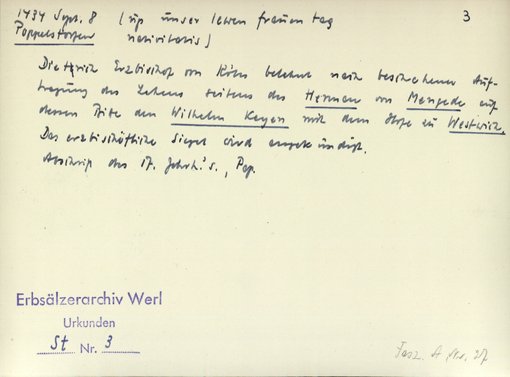 1434 Sept. 8 (up unser lewen frauen tag 3
Poppelstorpen nativitatis)
Dietrich Erzbischof von Köln belehnt nach beschehener Auf-
tragung des Lehens seitens des Herman von Mengede auf
dessen Bitte den Wilhelm Keyen mit dem Hofe zu Westwich.
Das erzbischöfliche Siegel wird angekündigt.
Abschrift des 17. Jahrh.'s., Pap.
Erbsälzerarchiv Werl
Urkunden
St Nr. 3
Fasz. A Nr. 27